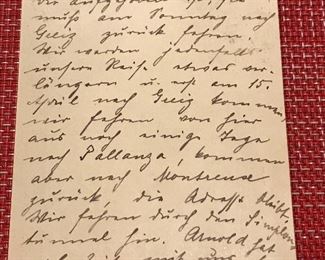 die aufgefordert ist, sie
muß am Sonntag nach
Greiz zurück fahren.
Wir werden jedenfalls
unsere Reise etwas ver-
längern u. erst am 15.
April nach Greiz kommen,
wir fahren von hier
aus noch einige Tage
nach Pallanza, kommen
aber nach Montreux
zurück, die Adresse bleibt.
Wir fahren durch den Simplon
tunnel hin. Arnold hat
sich mit uns